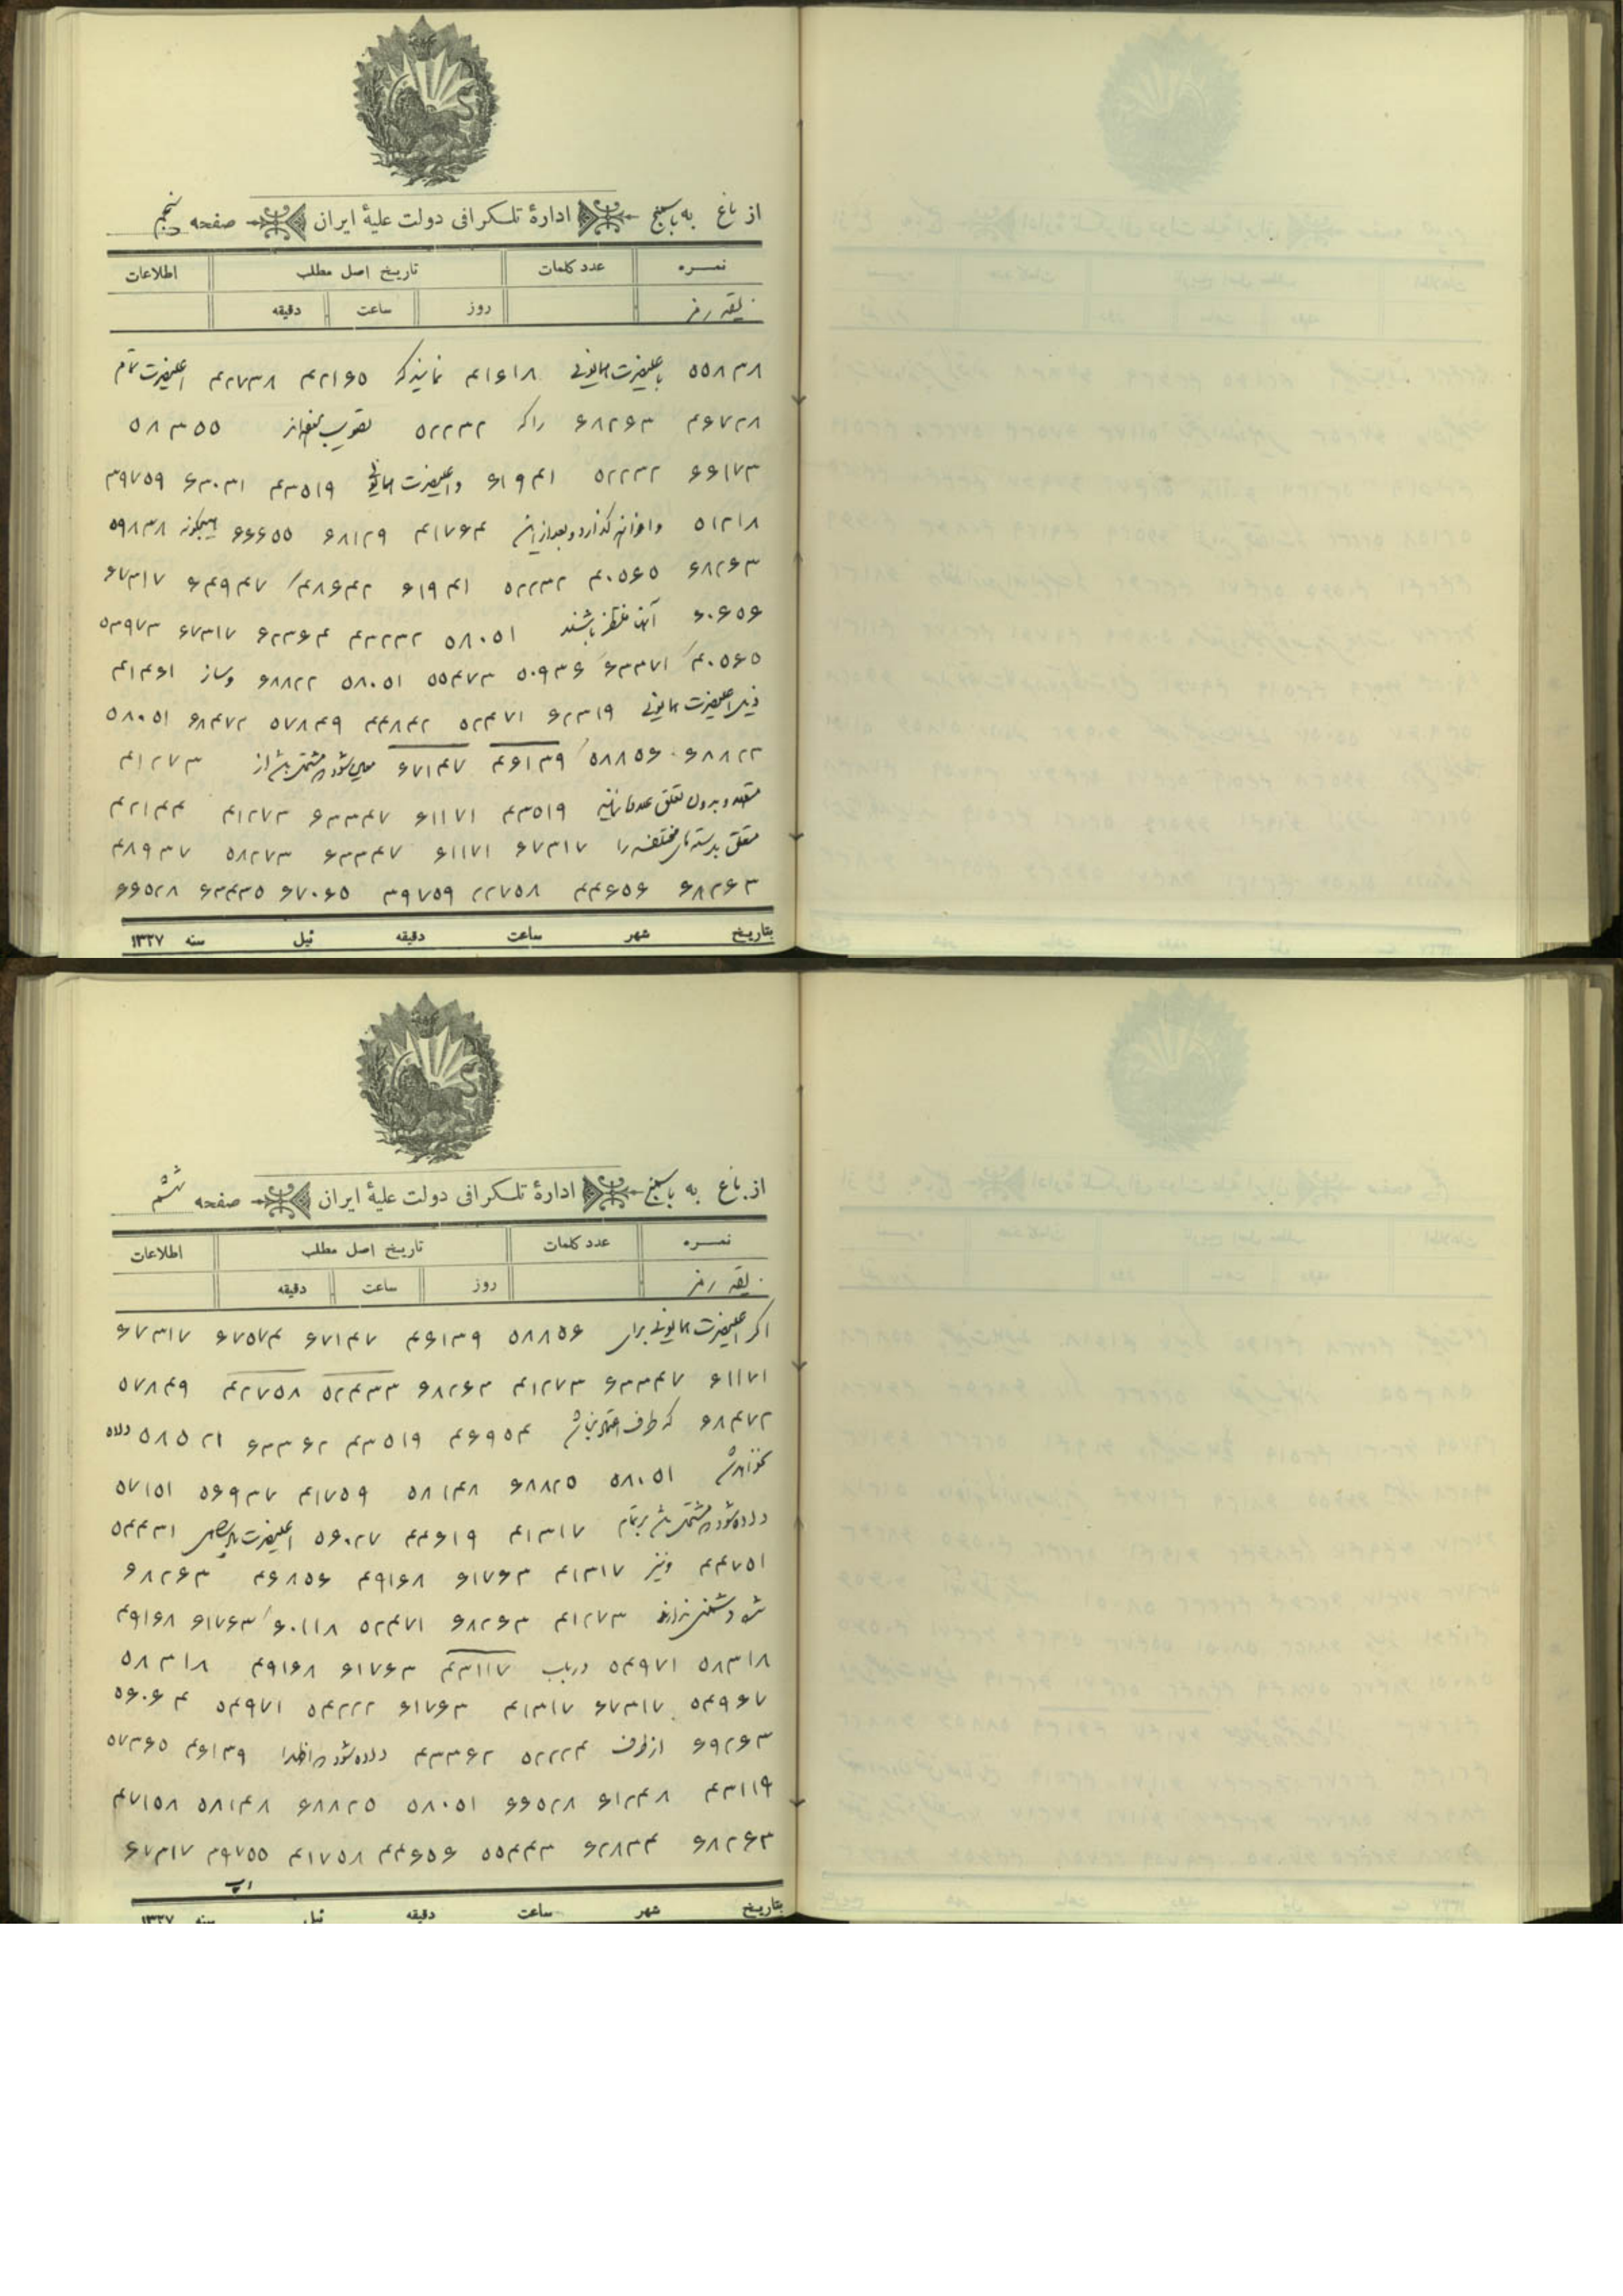 از باغ به پاستنج ادارۀ تلگرافی دولت علیۀ ایران صفحه پنجم
نمره عدد کلمات تاریخ اصل مطلب اطلاعات
بقیه رمز روز ساعت دقیقه
۵۵۸۳۸ باعلیحضرت همایونی ۴۱۶۱۸ نمایند که ۴۲۱۶۵ ۴۲۷۳۸ اعلیحضرت تمام
۴۶۷۲۸ ۶۸۲۶۳ را که ۵۲۲۳۲ تصویب ۵۸۳۵۵
۶۶۱۷۳ ۵۲۲۳۲ ۶۱۹۴۱ و اعلیحضرت همایونی ۴۳۵۱۹ ۶۳۰۳۱ ۳۹۷۵۹
۵۱۲۱۸ و بعد از آن ۴۱۷۶۴ ۶۸۱۲۹ ۶۶۶۵۵ هیچگونه ۵۹۸۳۸
۶۸۲۶۳ ۴۰۵۶۵ ۵۲۲۳۲ ۶۱۹۴۱ ۴۸۶۴۲ ۶۴۹۴۷ ۶۷۳۱۷
۶۰۶۵۶ باشند ۵۸۰۵۱ ۴۳۲۳۲ ۶۲۳۶۴ ۶۷۳۱۷ ۵۳۹۷۳
۴۰۵۶۵ ۶۳۳۷۱ ۵۰۹۳۶ ۵۵۴۷۳ ۵۸۰۵۱ ۶۸۸۲۲ و ساز ۴۱۴۶۱
اعلیحضرت همایونی ۶۲۳۱۹ ۵۲۴۷۱ ۴۴۸۴۲ ۵۷۸۴۹ ۶۸۴۷۲ ۵۸۰۵۱
۶۸۸۲۲ ۵۸۸۵۶ ۴۶۱۳۹ ۶۷۱۴۷ معین شود مشتمل باشد از ۴۱۲۷۳
۴۳۵۱۹ ۶۱۱۷۱ ۶۳۳۴۷ ۴۱۲۷۳ ۴۲۱۴۴
متعلق بدسته‌های مختلفه را ۶۷۳۱۷ ۶۱۱۷۱ ۶۳۳۴۷ ۵۸۲۷۳ ۴۸۹۳۷
۶۸۲۶۳ ۴۴۶۵۶ ۲۲۷۵۸ ۳۹۷۵۹ ۶۷۰۶۵ ۶۳۴۳۵ ۶۶۵۲۸
بتاریخ شهر ساعت دقیقه ئیل سنه ۱۳۲۷
از باغ به پاستنج ادارۀ تلگرافی دولت علیۀ ایران صفحه ششم
نمره عدد کلمات تاریخ اصل مطلب اطلاعات
بقیه رمز روز ساعت دقیقه
اگر اعلیحضرت همایونی برای ۵۸۸۵۶ ۴۶۱۳۹ ۶۷۱۴۷ ۶۷۵۷۴ ۶۷۳۱۷
۶۱۱۷۱ ۶۳۳۴۷ ۴۱۲۷۳ ۶۸۲۶۳ ۵۲۴۳۳ ۴۲۷۵۸ ۵۷۸۴۹
۶۸۴۷۲ که طرف اعتماد نباشد ۴۶۹۵۴ ۴۳۵۱۹ ۶۳۳۶۲ ۵۸۵۲۱ داده
نخواهد شد ۵۸۰۵۱ ۶۸۸۲۵ ۵۸۱۴۸ ۴۱۷۵۹ ۵۶۹۳۷ ۵۷۱۵۱
داده شود مشتمل باشد بر تمام ۴۱۳۱۷ ۴۴۶۱۹ ۵۶۰۲۷ اعلیحضرت ۵۴۴۳۱
۴۴۷۵۱ و نیز ۴۱۳۱۷ ۶۱۷۶۳ ۴۹۱۶۸ ۴۶۸۵۶ ۶۸۲۶۳
۴۱۲۷۳ ۶۸۲۶۳ ۵۲۴۷۱ ۶۰۱۱۸ ۶۱۷۶۳ ۴۹۱۶۸
۵۸۳۱۸ ۵۴۹۷۱ در باب ۴۳۱۱۷ ۶۱۷۶۳ ۴۹۱۶۸ ۵۸۳۱۸
۵۴۹۶۷ ۶۷۳۱۷ ۴۱۳۱۷ ۶۱۷۶۳ ۵۴۲۲۲ ۵۴۹۷۱ ۵۶۰۶۴
۶۹۲۶۳ از طرف ۵۲۲۲۴ ۴۳۳۶۲ داده شود ۴۶۱۳۹ ۵۷۳۶۵
۴۳۱۱۹ ۶۱۲۴۸ ۶۶۵۲۸ ۵۸۰۵۱ ۶۸۸۲۵ ۵۸۱۴۸ ۴۷۱۵۸
۶۸۲۶۳ ۶۲۸۳۴ ۵۵۴۴۳ ۴۴۶۵۶ ۴۱۷۵۸ ۳۹۷۵۵ ۶۷۳۱۷
بتاریخ شهر ساعت دقیقه ئیل سنه ۱۳۲۷